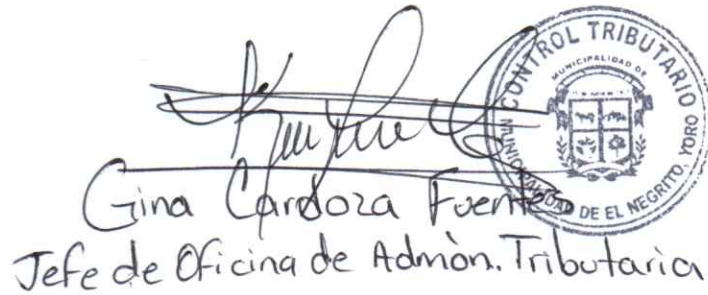 CONTROL TRIBUTARIO
MUNICIPALIDAD DE
MUNICIPALIDAD DE EL NEGRITO, YORO
Gina Cardoza Fuentes
Jefe de Oficina de Admòn. Tributaria